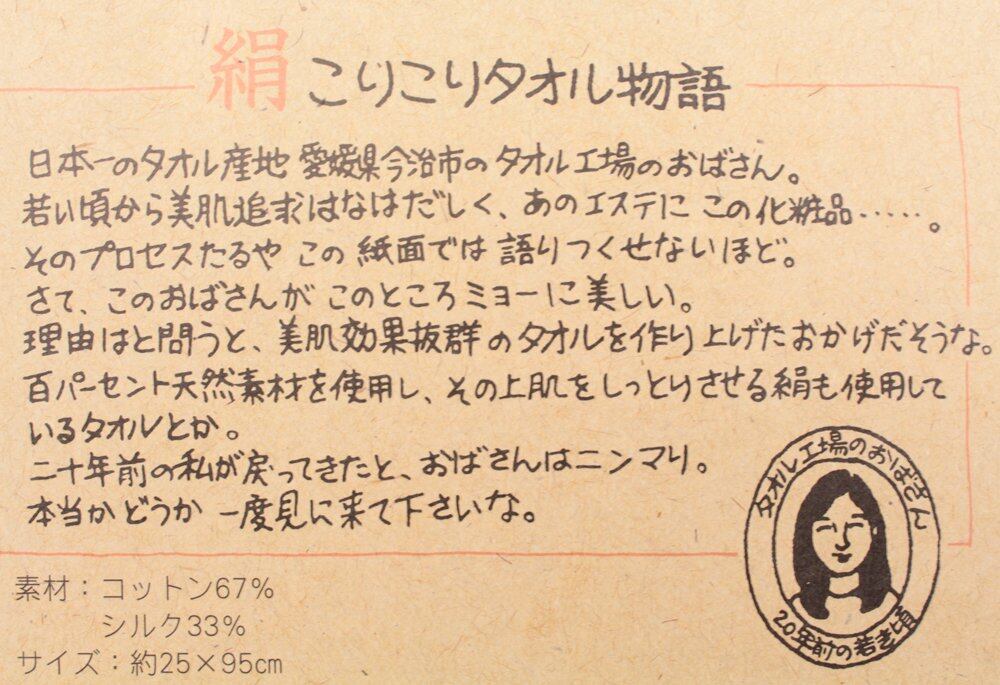 絹 こりこりタオル物語
日本一のタオル産地 愛媛県今治市のタオル工場のおばさん。
若い頃から美肌追求はなはだしく、あのエステに この化粧品……。
そのプロセスたるや この紙面では 語りつくせないほど。
さて、このおばさんが このところミョーに美しい。
理由はと問うと、美肌効果抜群のタオルを作り上げたおかげだそうな。
百パーセント天然素材を使用し、その上肌をしっとりさせる絹も使用して
いるタオルとか。
二十年前の私が戻ってきたと、おばさんはニンマリ。
本当かどうか 一度見に来て下さいな。
タオル工場のおばさん
20年前の若き頃
素材：コットン67%
シルク33%
サイズ：約25×95cm